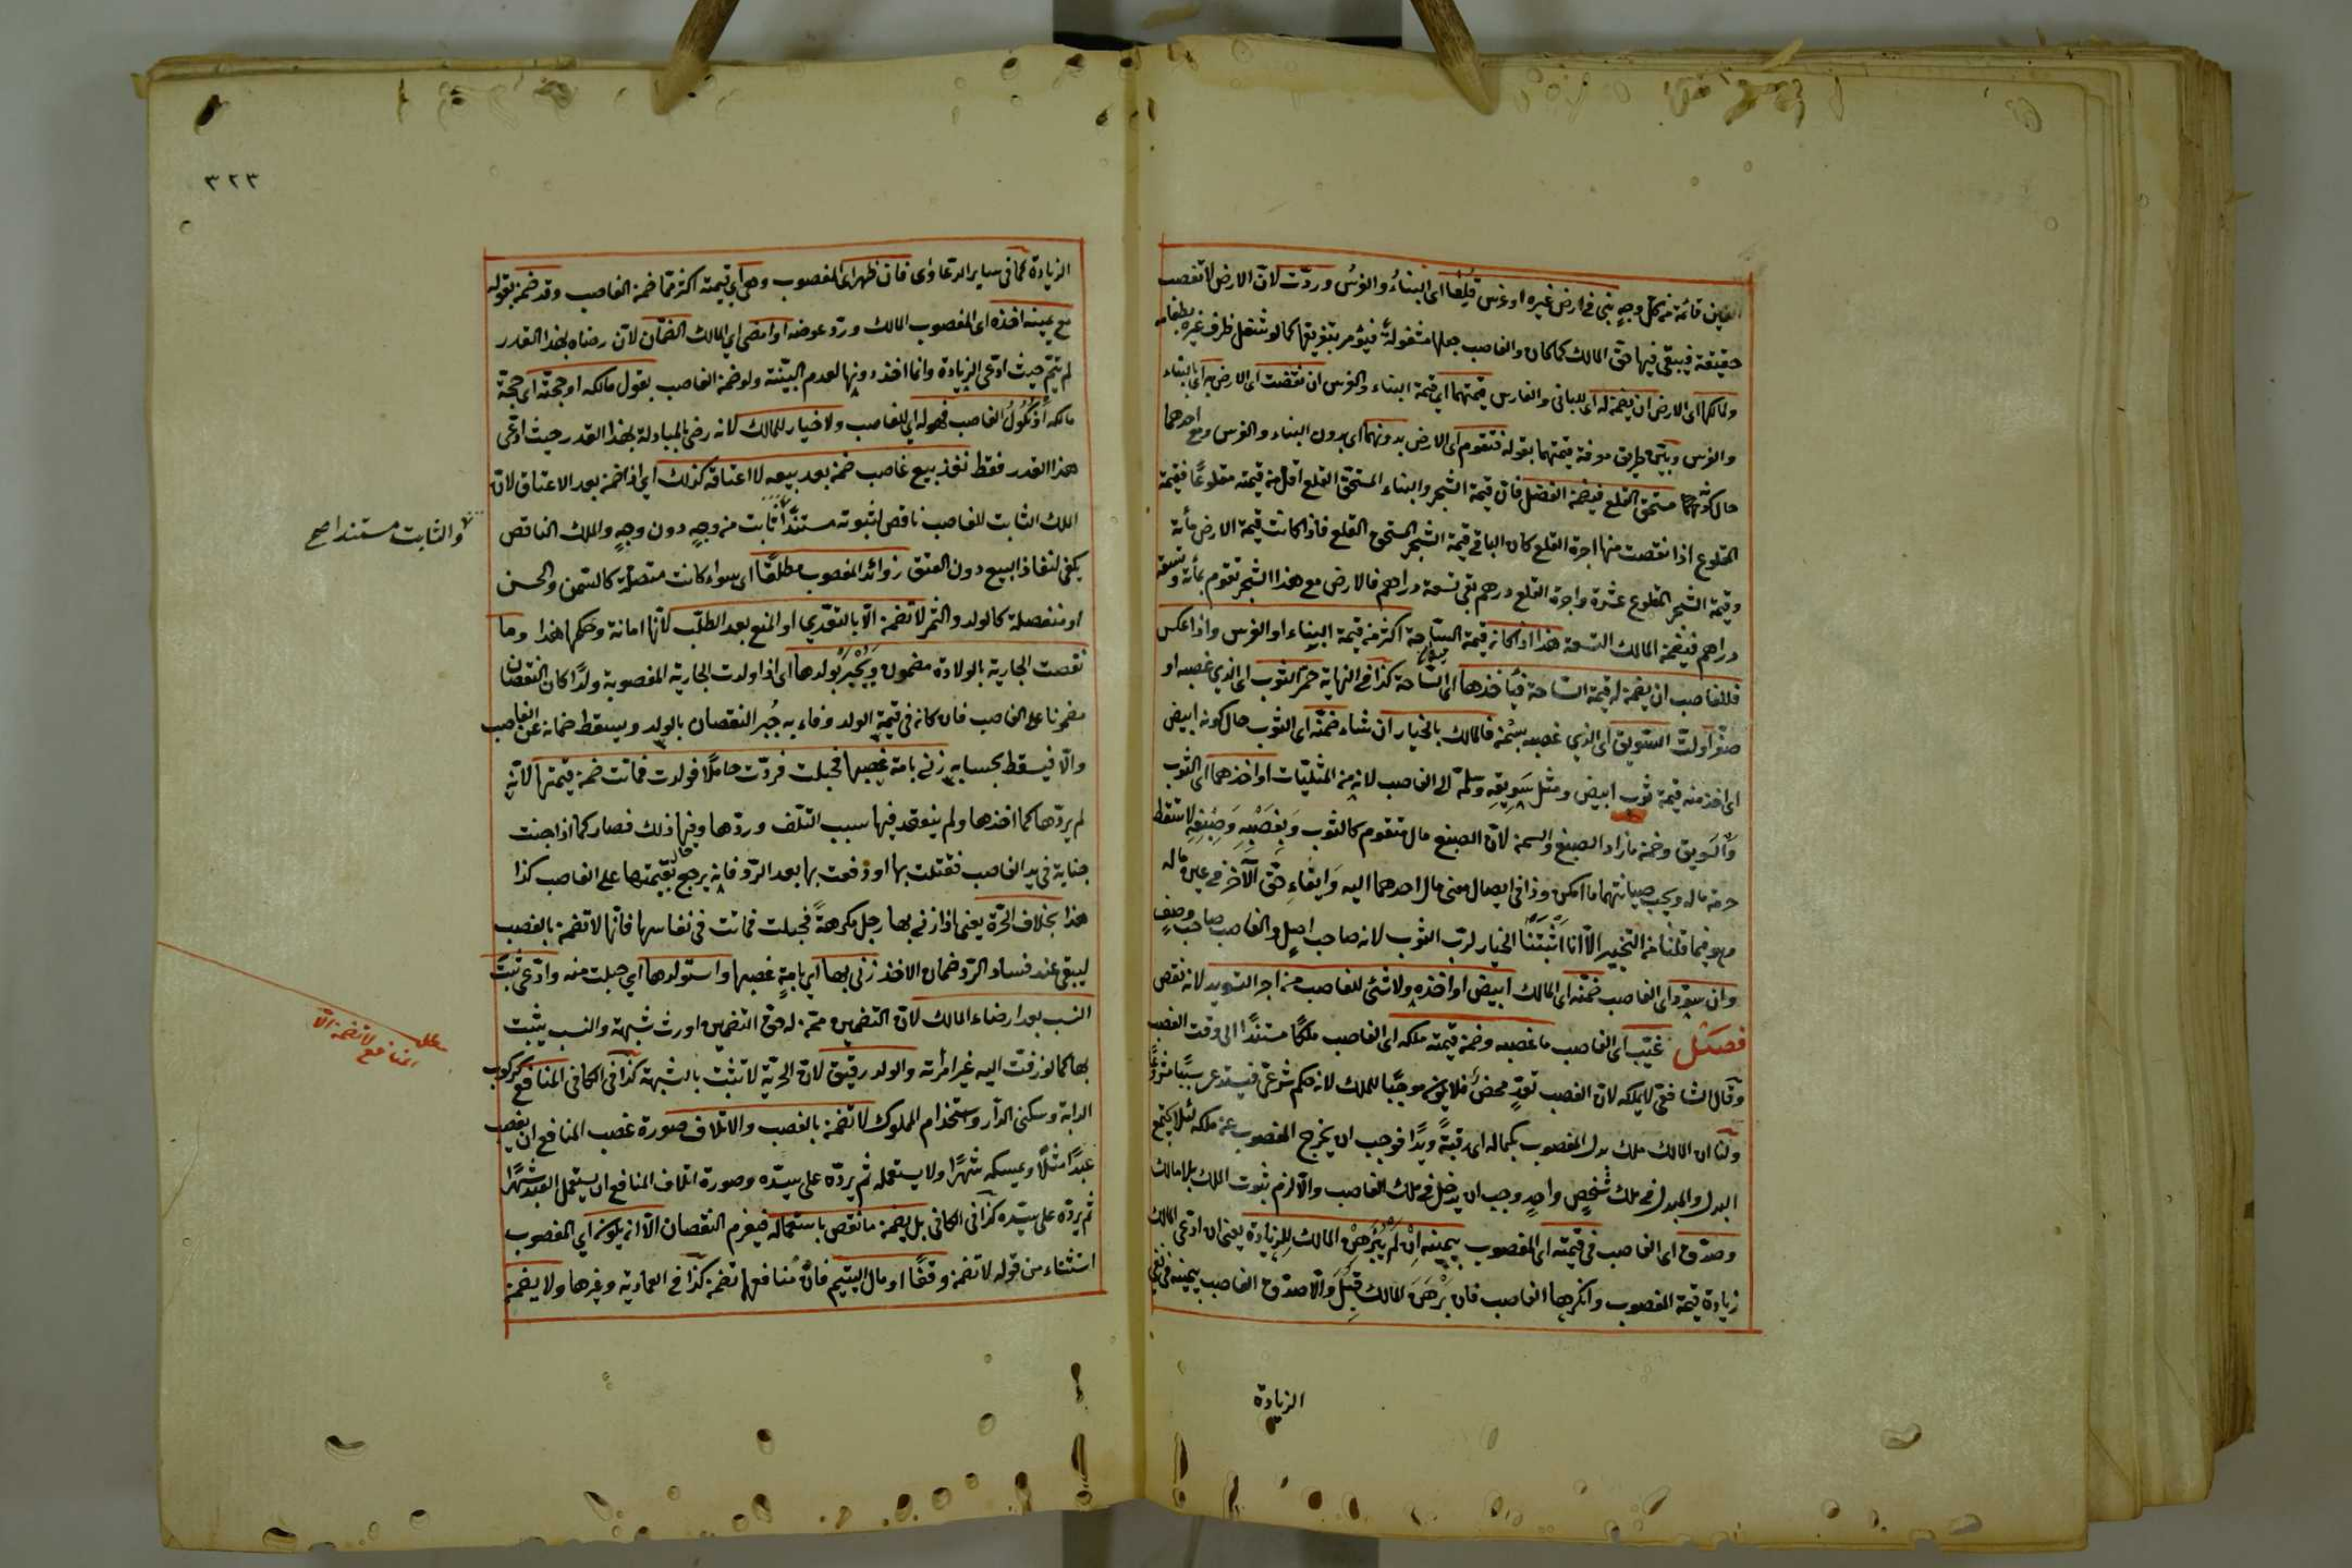 العين قائمة من كل وجه بنى في ارض غيره او غرس قلعا اى البناء والغرس وردّت لان الارض لا تغصب
حقيقة فيبقى فيها حق المالك كما كان والغاصب جعلها مشغولة فيؤمر بتفريغها كما لو شغل ظرف غيره بطعامه
ولمالكها اى الارض ان يضمن له اى للبانى والغارس قيمتهما اى قيمة البناء والغرس ان نقصت اى الارض به اى بالبناء
والغرس وبيّن طريق معرفة قيمتهما بقوله فتقوم اى الارض بدونهما اى بدون البناء والغرس ومع احدهما
حال كونه مستحق القلع فيضمن الفضل فان قيمة الشجر والبناء المستحق القلع اقل من قيمته مقلوعًا فقيمة
المقلوع اذا نقصت منها اجرة القلع كان الباقى قيمة الشجر المستحق القلع فاذا كانت قيمة الارض مأة
وقيمة الشجر المقلوع عشرة واجرة القلع درهم بقى تسعة دراهم فالارض مع هذا الشجر تقوم بمأة وتسعة
دراهم فيضمن المالك التسعة هذا اذا كانت قيمة الساحة اكثر من قيمة البناء او الغرس واذا عكس
فللغاصب ان يضمن له قيمة الساحة فيأخذها اى الساحة كذا فى النهاية حمّر الثوب اى الذي غصبه او
صفّر او لتّ السويق اى الذي غصبه بسمن فالمالك بالخيار ان شاء ضمّنه اى الثوب حال كونه ابيض
اى اخذ منه قيمة ثوب ابيض ومثل سَوِيقِهِ وسلمه الى الغاصب لانه من المثليّات او اخذهما اى الثوب
والسويق وضمن ما زاد الصبغ والسمن لان الصبغ مال متقوم كالثوب وبغصبه وصبغه لا تسقط
حرمة ماله ويجب صيانتهما ما امكن وذا فى ايصال معنى مال احدهما اليه وابقاء حق الآخر فى عين ماله
وهو فيما قلنا من التخيير الّا انا اثبتنا الخيار لرب الثوب لانه صاحب اصل والغاصب صاحب وصف
وان سوّد اى الغاصب ضمّنه اى المالك ابيض او اخذه ولا شئ للغاصب من اجر التسويد لانه نقص
فصل غيّب اى الغاصب ما غصبه وضمن قيمته ملكه اى الغاصب ملكًا مستندًا الى وقت الغصب
وقال الشافعى لا يملكه لان الغصب تعدٍّ محض فلا يكون موجبًا للملك لانه حكم شرعى فيستدعى سببًا مشروعًا
ولنا ان المالك ملك بدل المغصوب بكماله اى رقبةً ويدًا فوجب ان يخرج المغصوب عن ملكه لئلا يجتمع
البدل والمبدل فى ملك شخصٍ واحدٍ وجب ان يدخل فى ملك الغاصب والّا لزم ثبوت الملك بلا مالك
وصدّق اى الغاصب فى قيمته اى المغصوب بيمينه ان لم يُبَرْهِن المالك للزيادة يعنى ان ادعى المالك
زيادة قيمة المغصوب وانكرها الغاصب فان برهن المالك قبل والّا صدّق الغاصب بيمينه فى نفى
الزيادة
٣٢٣
الزيادة كما فى ساير الدعاوى فان ظهر اى المغصوب وهى اى قيمته اكثر مما ضمن الغاصب وقد ضمن بقوله
مع يمينه اخذه اى المغصوب المالك وردّ عوضه او امضى اى المالك الضمان لان رضاه بهذا القدر
لم يتمّ حيث ادّعى الزيادة وانما اخذ دونها لعدم البيّنة ولو ضمن الغاصب بقول مالكه او حجته اى حجة
مالكه او نكول الغاصب فهو له اى للغاصب ولا خيار للمالك لانه رضى بالمبادلة بهذا القدر حيث ادّعى
هذا القدر فقط نفذ بيع غاصب ضمن بعد بيعه لا اعتاقه كذلك اى اذا ضمن بعد الاعتاق لان
الملك الثابت للغاصب ناقص لثبوته مستندًا ثابت من وجهٍ دون وجهٍ والملك الناقص
والثابت مستندا صح
يكفى لنفاذ البيع دون العتق زوائد المغصوب مطلقًا اى سواء كانت متصلة كالسّمن والحسن
او منفصلة كالولد والثمر لا تضمن الّا بالتعدّي او المنع بعد الطلب لانّها امانة وحكمها هذا وما
نقصت الجارية بالولادة مضمون ويُجْبَر بولدها اى اذا ولدت الجارية المغصوبة ولدًا كان النقصان
مضمونا على الغاصب فان كان فى قيمة الولد وفاء به جُبر النقصان بالولد ويسقط ضمانه عن الغاصب
والّا فيسقط بحسابه زنى بامة غصبها فحبلت فردّت حاملًا فولدت فماتت ضمن قيمتها لانّه
لم يردّها كما اخذها ولم ينعقد فيها سبب التلف وردّها وفيها ذلك فصار كما اذا جنت
جناية فى يد الغاصب فقتلت بها او دفعت بها بعد الردّ فانه يرجع بقيمتها على الغاصب كذا
هذا بخلاف الحرّة يعنى اذا زنى بها رجل مكرهةً فحبلت فماتت فى نفاسها فانّها لا تضمن بالغصب
ليبقى عند فساد الردّ ضمان الاخذ زنى بها اى بامةٍ غصبها واستولدها اى حبلت منه وادّعى ثبت
النسب بعد ارضاء المالك لان التضمين من له حق التضمين اورث شبهة والنسب يثبت
بها كما لو زفت اليه غير امرأته والولد رقيق لان الحرية لا تثبت بالشبهة كذا فى الكافى المنافع كركوب
مطلب المنافع لا تضمن الّا
الدابة وسكنى الدار واستخدام المملوك لا تضمن بالغصب والاتلاف صورة غصب المنافع ان يغصب
عبدًا مثلًا ويمسكه شهرًا ولا يستعمله ثم يردّه على سيّده وصورة اتلاف المنافع ان يستعمل العبد شهرًا
ثم يردّه على سيّده كذا فى الكافى بل يضمن ما نقص باستعماله فيغرم النقصان الّا ان يكون اى المغصوب
استثناء من قوله لا تضمن وقفًا او مال اليتيم فانّ منافعهما تضمن كذا فى العمادية وغيرها ولا يضمن